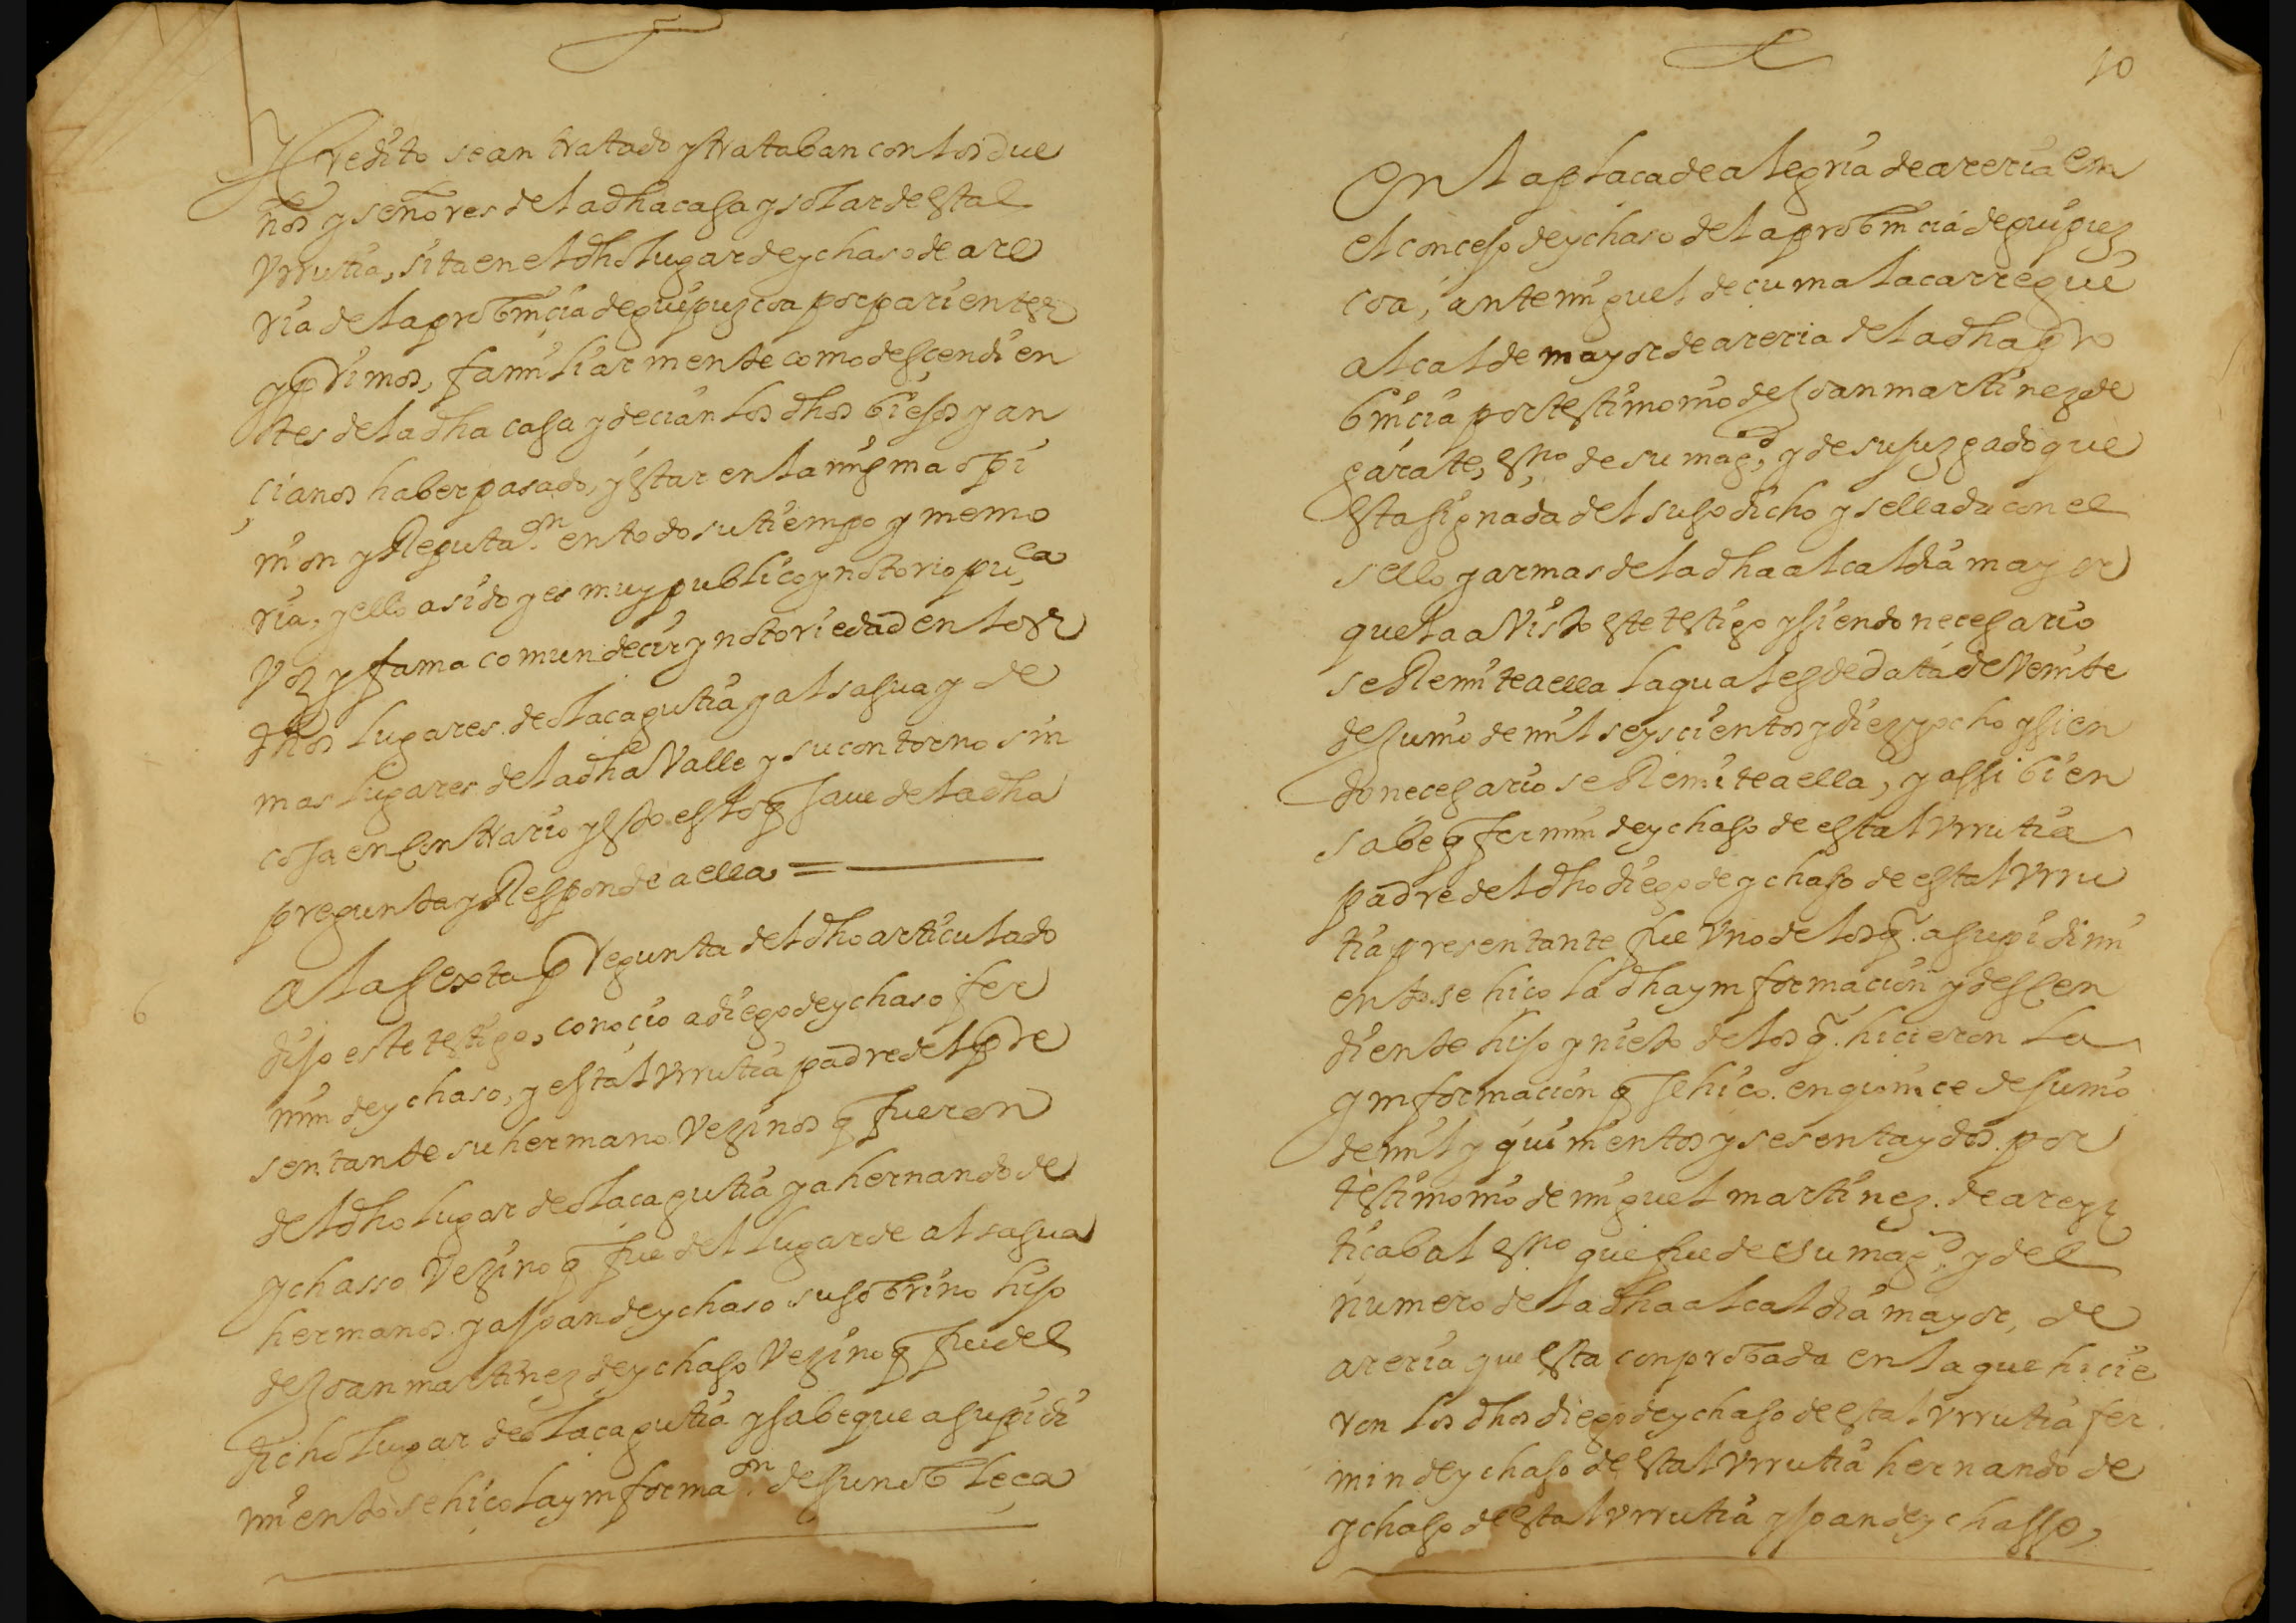 Y Credito se an tratado y trataban con los due
ños y señores de la dha casa y solar de estal
Vrrutia, sita en el dho lugar de ychaso de are
ria de la probinçia de guipuzcoa por parientes
y primos, familiarmente como desçendien
tes de la dha casa y decian los dhos biejos y an
çianos haber pasado, y estar en la misma opi
nion y Reputa.on en todo su tiempo y memo
ria, y ello a sido y es muy publico y notorio pu.ca
Voz y fama comun decir y notoriedad en los
dhos lugares de olaçagutia y alsasua y de
mas lugares de la dha Valle y su contorno sin
cosa en Contrario y esto es lo q saue de la dha
pregunta y Responde a ella =
6
A la sexta pregunta del dho articulado
dijo este testigo, conoçio a diego de ychaso fer
min de ychaso, y estal vrrutia padre del pre
sentante su hermano Vezinos q fueron
del dho lugar de olaçagutia y a hernando de
ychasso Vezino q fue del lugar de alsasua
hermanos. y a Joan de ychaso su sobrino hijo
de Joan martinez de ychaso Vezino q fue del
dicho lugar de olaçagutia y sabe que a su pidi
miento se hiço la ynforma.on de su nobleça
10
En la plaça de alegria de areria en
el conçejo de ychaso de la probinçia de guipuz
coa, ante miguel de çumalacarregui
alcalde mayor de areria de la dha pro
binçia por testimonio de Joan martinez de
garate, essno de su mag.d y de su juzgado que
esta signada del susodicho y sellada con el
sello y armas de la dha alcaldia mayor
que la a Visto este testigo y siendo necesario
se Remite a ella la qual es de data de Veinte
de Junio de mil seyscientos y diez y ocho y sien
do necesario se Remite a ella, y assi bien
sabe q fermin de ychaso de estal Vrrutia
padre del dho diego de ychaso de estal Vrru
tia presentante fue Vno de los q. a su pidimi
ento se hiço la dha ynformaçion y desCen
diente hijo y nieto de los q. hicieron la
ynformaçion q se hiço. en quinçe de Junio
de mil y quinientos y sesenta y dos. por
testimonio de miguel martinez. de areyz
ticabal essno que fue de su mag.d y del
numero de la dha alcaldia mayor, de
areria que esta conprobada en la que hicie
ron los dhos diego de ychaso de estal vrrutia fer
min de ychaso de estal vrrutia hernando de
ychaso de estal vrrutia y Joan de ychasso,